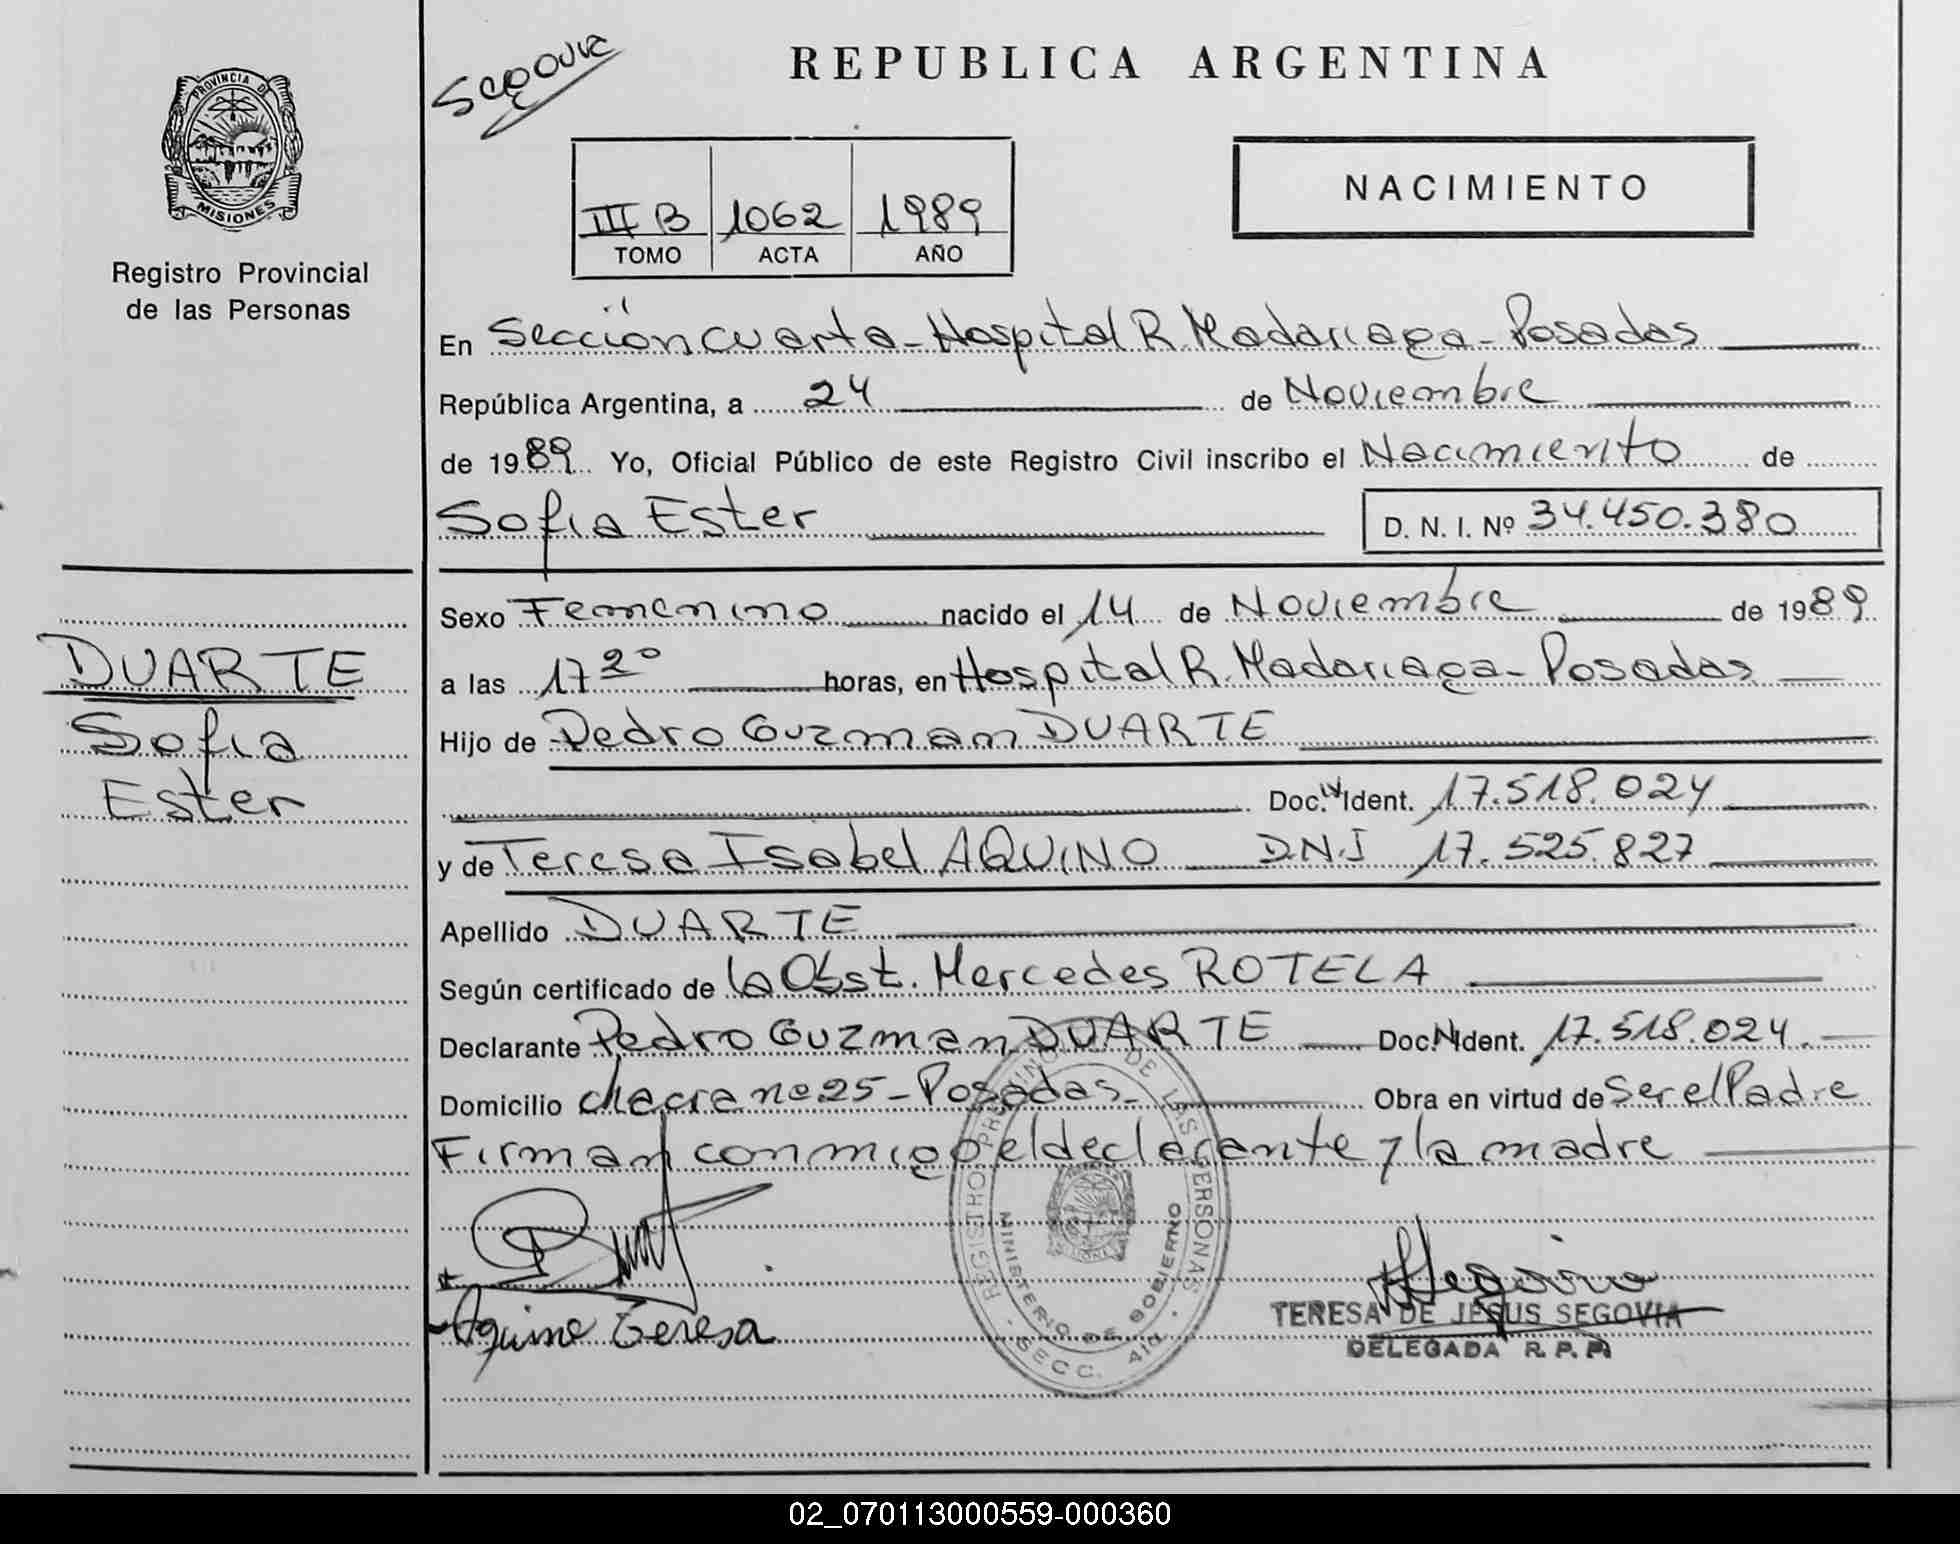 PROVINCIA D
MISIONES
Registro Provincial
de las Personas
DUARTE
Sofia
Ester
Segovia
REPUBLICA ARGENTINA
III B 1062 1989
TOMO ACTA AÑO
NACIMIENTO
En Sección cuarta - Hospital R. Madariaga - Posadas
República Argentina, a 24 de Noviembre
de 1989 Yo, Oficial Público de este Registro Civil inscribo el Nacimiento de
Sofia Ester D. N. I. Nº 34.450.380
Sexo Femenino nacido el 14 de Noviembre de 1989
a las 17 20 horas, en Hospital R. Madariaga - Posadas
Hijo de Pedro Guzman DUARTE
Doc. Ident. 17.518.024
y de Teresa Isabel AQUINO DNI 17.525.827
Apellido DUARTE
Según certificado de la Obst. Mercedes ROTELA
Declarante Pedro Guzman DUARTE Doc. Ident. 17.518.024.
Domicilio chacra nº 25 - Posadas - Obra en virtud de Ser el Padre
Firman conmigo el declarante y la madre
Aquino Teresa
REGISTRO PROVINCIAL DE LAS PERSONAS
MINISTERIO DE GOBIERNO
SECC. 4ta
TERESA DE JESUS SEGOVIA
DELEGADA R. P. P.
02_070113000559-000360